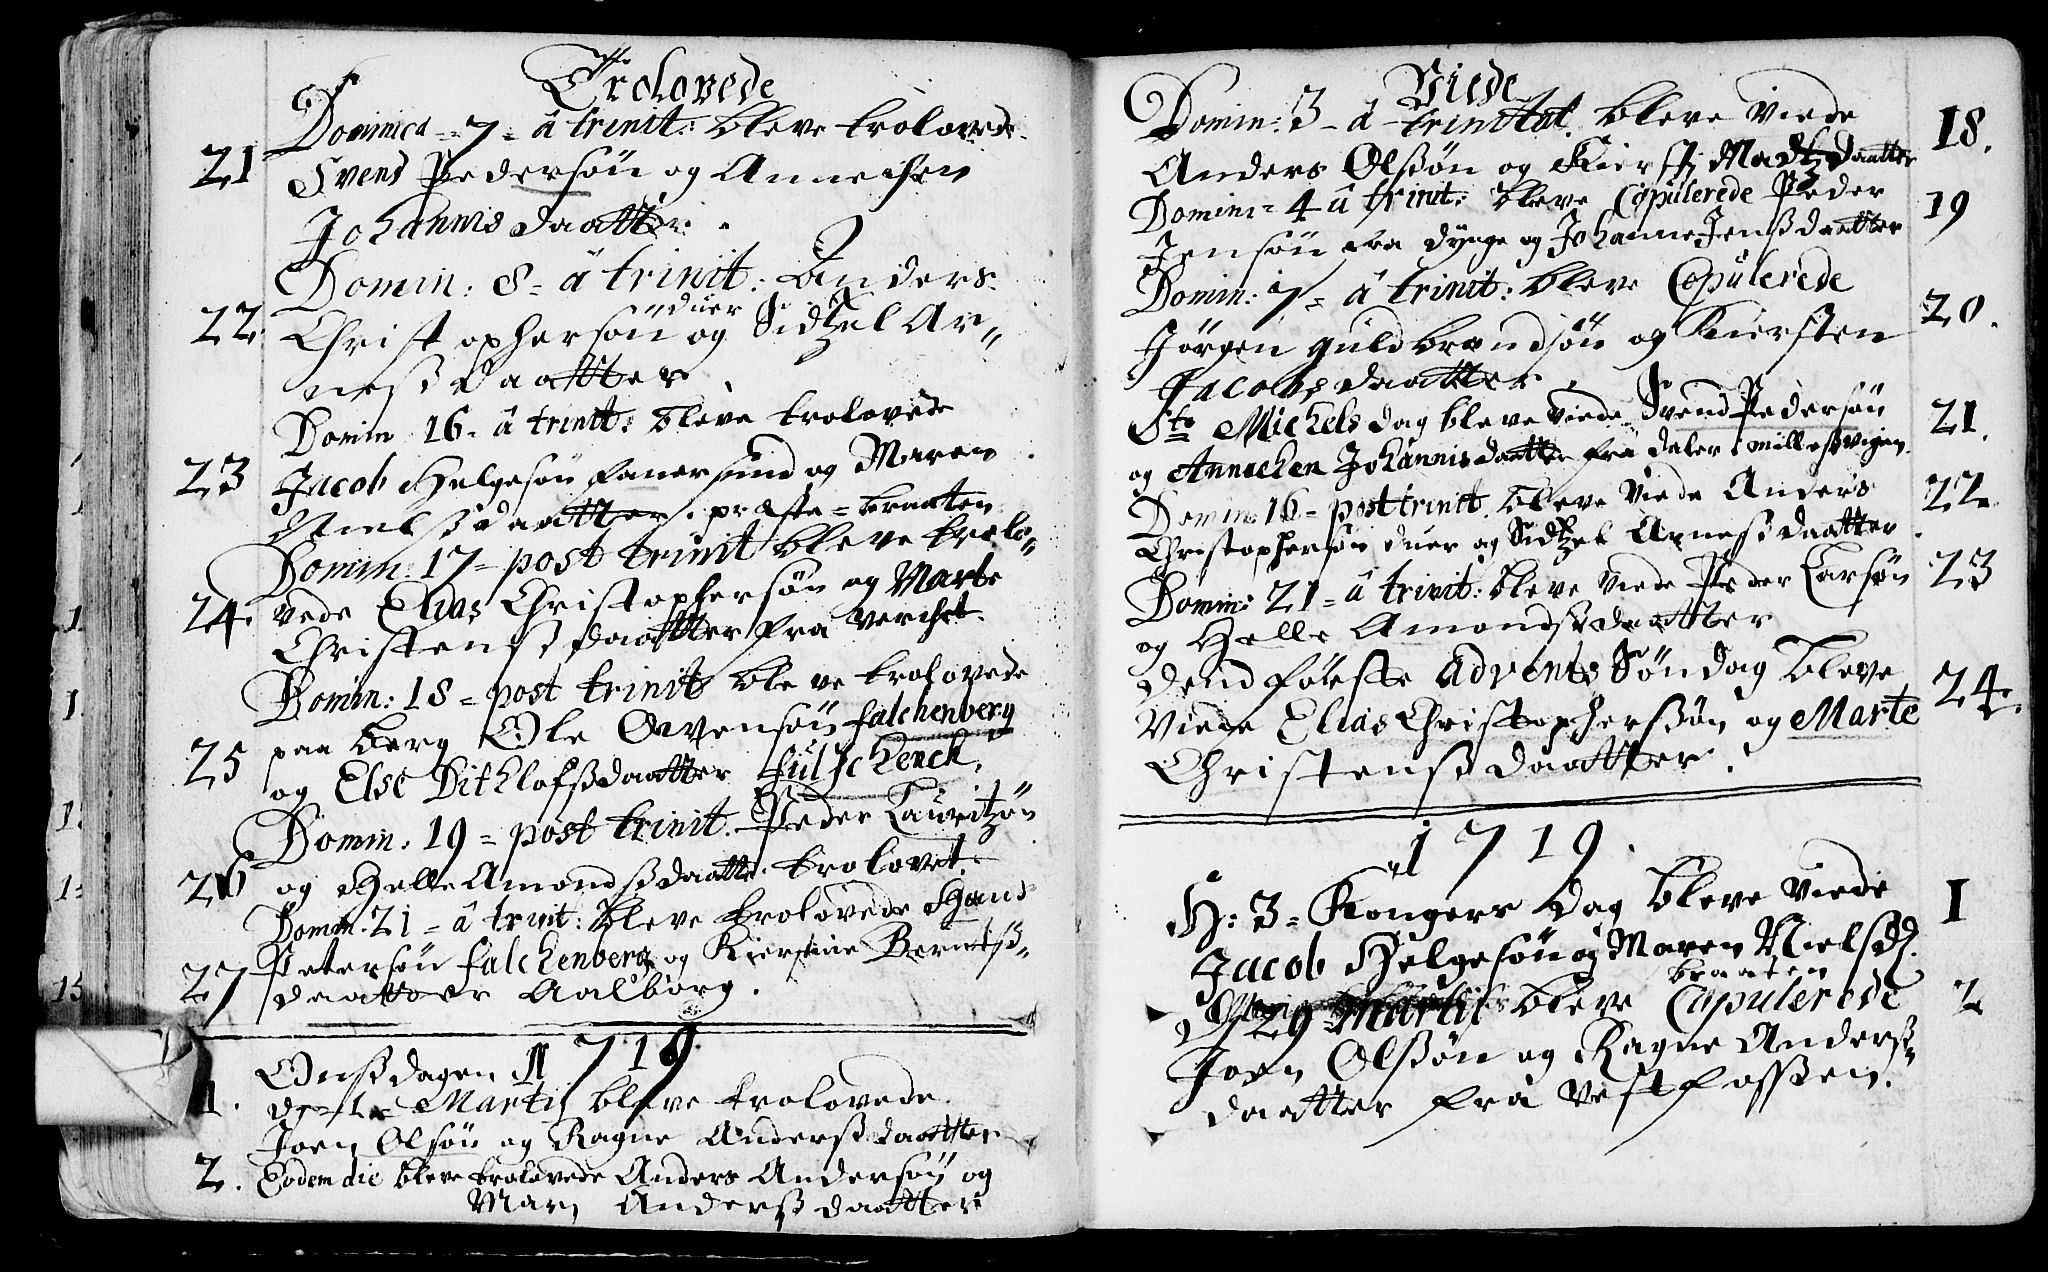 Trolovede
Dominica = 7 = â trinit: bleve trolovede
21 Svend Pedersøn og Annechen
Johannis daatter.
Domin: 8 = â trinit: Anders
duer
22. Christophersøn og Sidtzel Ar=
neß daatter
Domin 16. â trinit: bleve trolovede
23 Jacob Helgesøn fanersund og Maren
Nielß daatter. præste = braaten
Domin: 17 = post trinit bleve trolo=
24. vede Elias Christophersøn og Marte
Christenß daatter fra
Domin: 18 = post trinit bleve trolovede
25 paa berg Ole Ovensøn falchenberg
og Else Dithlofß daatter
Domin. 19 = post trinit. Peder Lauritzøn
26 og Helle Amondß daatter trolovet.
Domin. 21 = â trinit: bleve trolovede Hans
Petersøn falchenberg og Kierstine Berntß=
27 daatter Aalborg.
1719.
Onsdagen
1. d. 1. Martij bleve trolovede
Joen Olsøn og Ragne Anderß daatter
2. Eodem die bleve trolovede Anders Andersøn og
Mari Anderß daatter
Viede
Domin: 3 - â trinitat. bleve viede 18.
Anders Olßøn og Kiersti Madtz daatter
Domini = 4 â trinit: bleve Copulerede Peder 19
Jensøn fra dynge og Johanne Jenß daatter
Domin: 7 = â trinit: bleve Copulerede
Jørgen guldbrandsøn og Kiersten 20.
Jacobs daatter.
Ste Michels dag bleve viede Svend Pedersøn 21.
og Annechen Johannis daatter fra daler i milleßvigen.
Domin: 16 - post trinit. bleve viede Anders 22.
Christophersøn duer og Sidtzel Arneß daatter.
Domin: 21 = â trinit: bleve viede Peder Larsøn 23
og Helle Amondß daatter
Dend første Advents Søndag bleve
Viede Elias Christopherßøn og Marte 24.
Christenß daatter.
1719.
H: 3 = Kongers dag bleve viede I
Jacob Helgesøn og Maren Nielsd.
braaten
d 29 Martii bleve Copulerede 2
Joen Olßøn og Ragne Anderß=
daatter fra vestfossen.